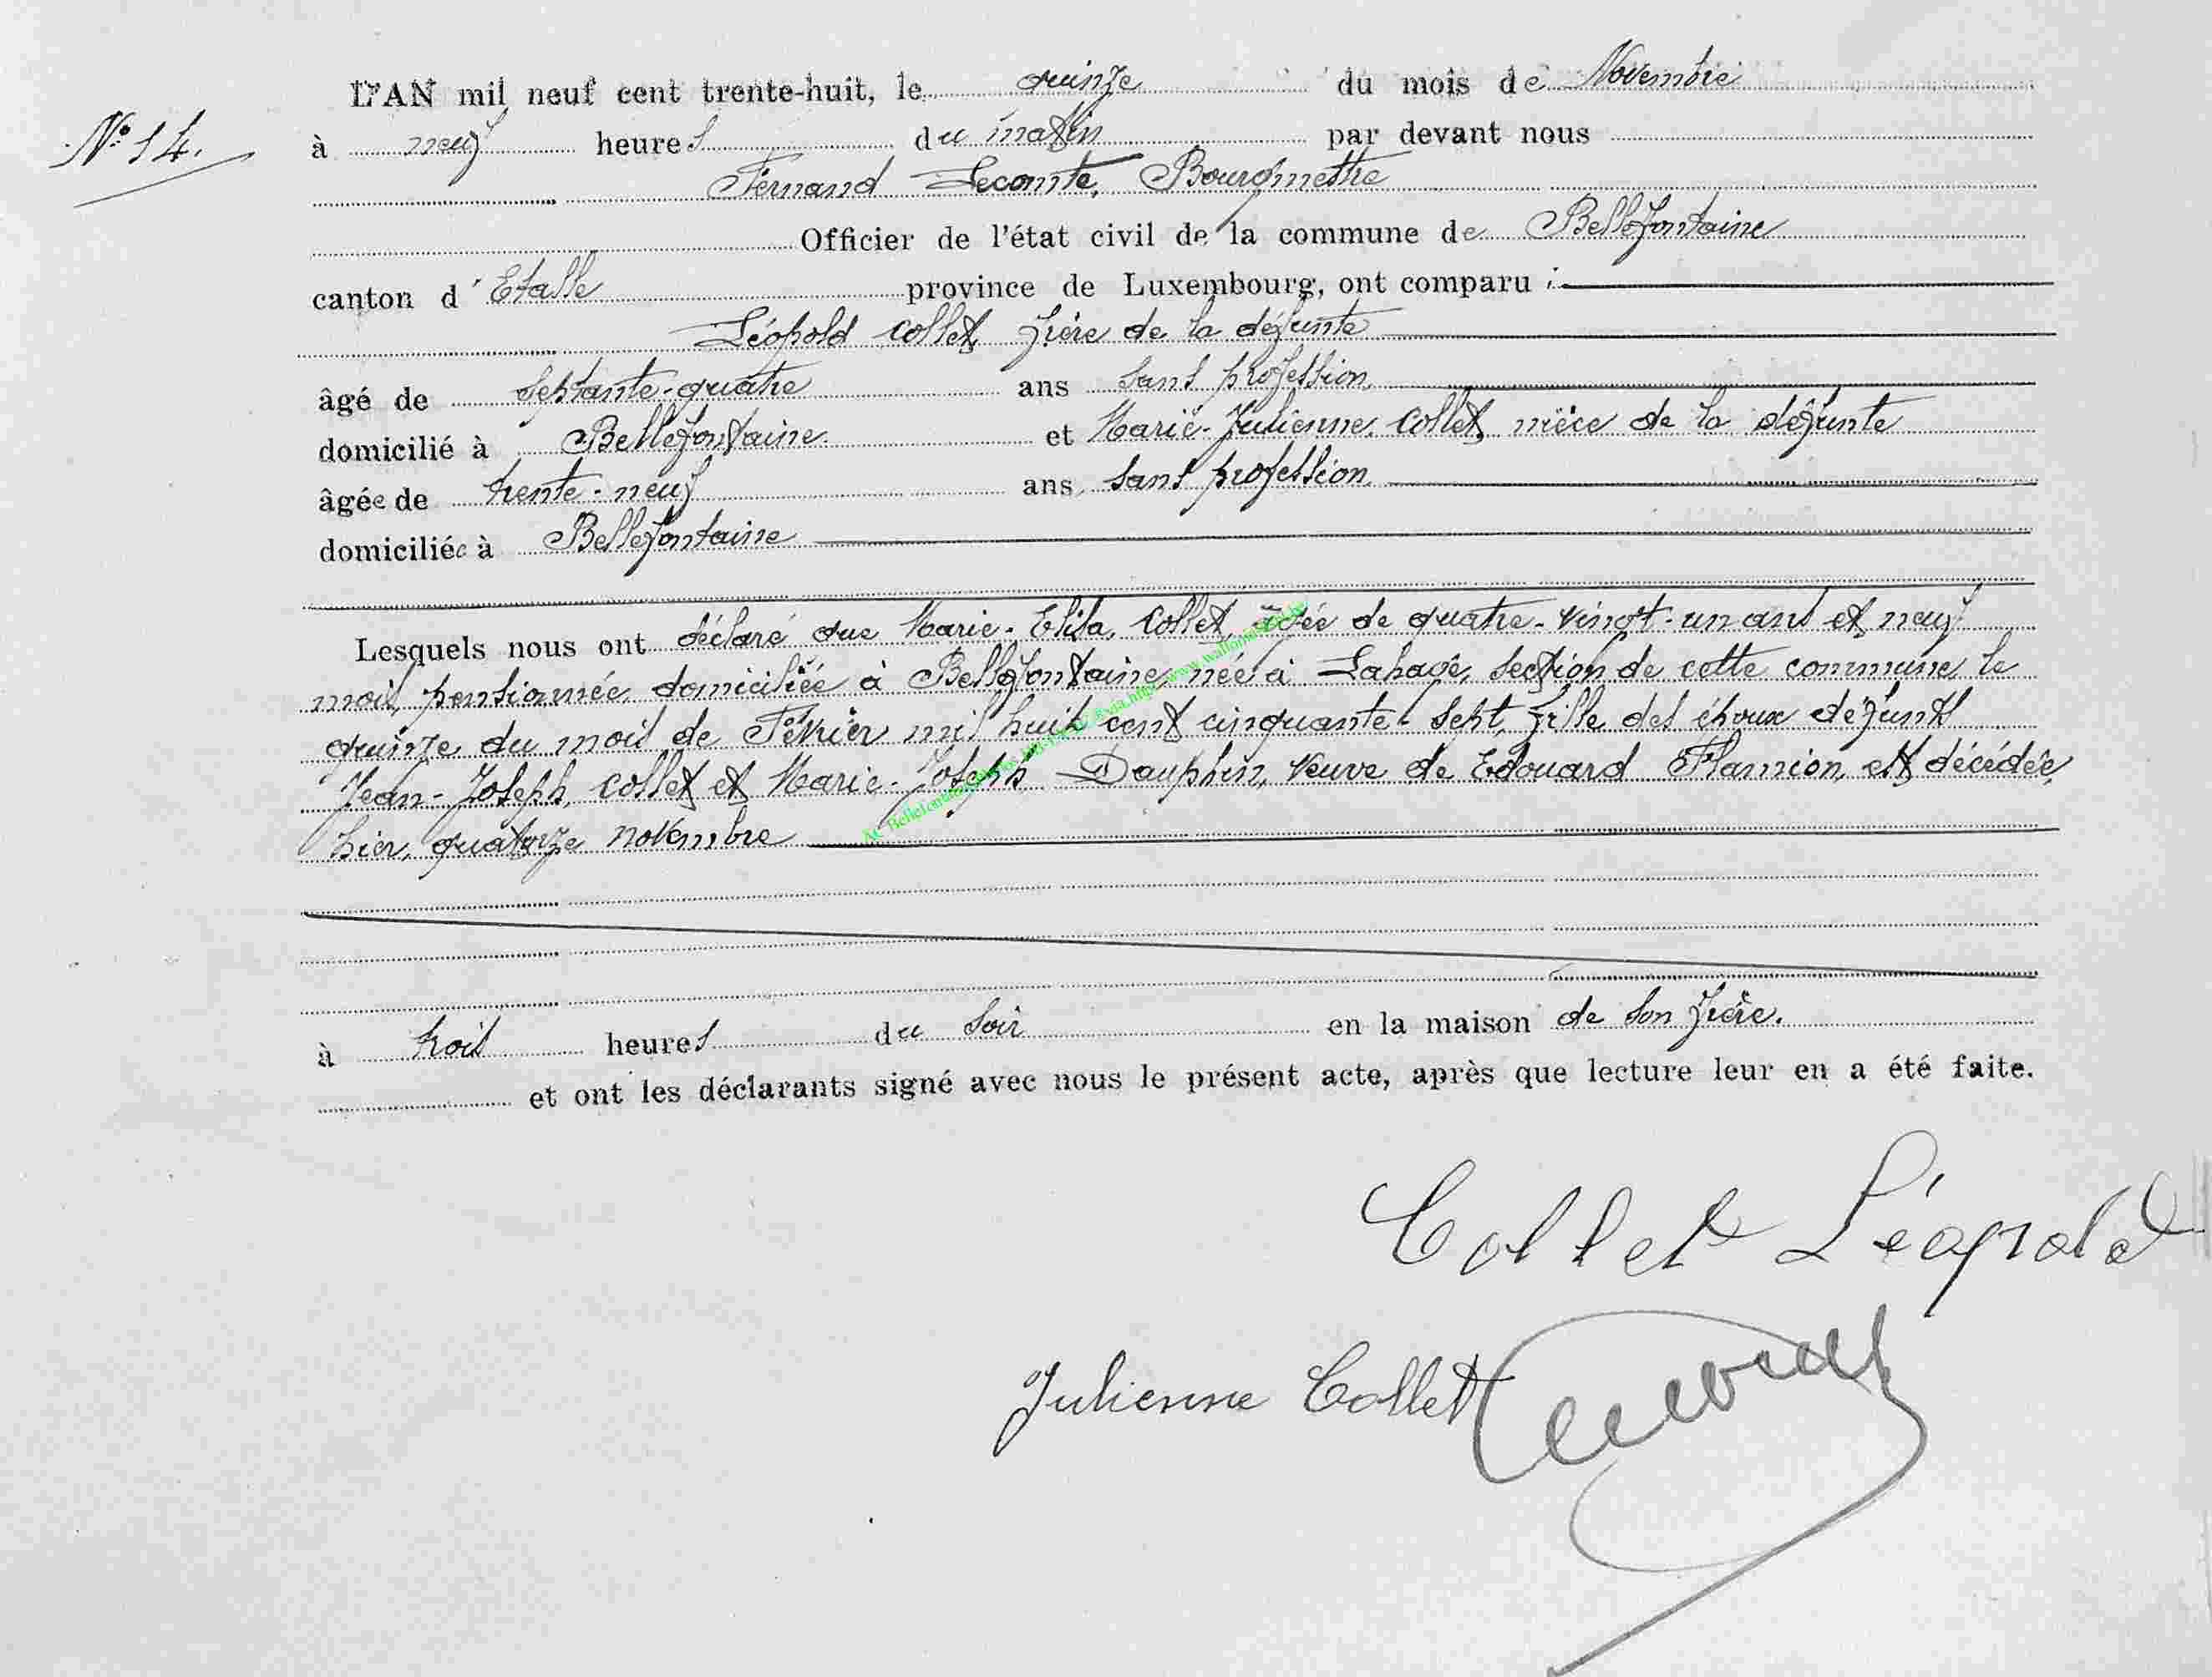 N° 14.
L'AN mil neuf cent trente-huit, le quinze du mois de Novembre
à neuf heures du matin par devant nous
Fernand Lecomte, Bourgmestre
Officier de l'état civil de la commune de Bellefontaine
canton d'Etalle province de Luxembourg, ont comparu :
Léopold Collet, frère de la défunte
âgé de septante-quatre ans sans profession,
domicilié à Bellefontaine et Marie-Julienne, Collet, nièce de la défunte
âgée de trente-neuf ans, sans profession,
domiciliée à Bellefontaine
Lesquels nous ont déclaré que Marie-Elisa, Collet, âgée de quatre-vingt-un ans et neuf
mois, pensionnée, domiciliée à Bellefontaine, née à Lahage, section de cette commune le
quinze du mois de Février mil huit cent cinquante-sept, fille des époux défunts
Jean-Joseph, Collet et Marie-Joseph Dauphin, veuve de Edouard Flamion, est décédée,
hier, quatorze novembre
à trois heures du soir en la maison de son frère.
et ont les déclarants signé avec nous le présent acte, après que lecture leur en a été faite.
Collet Léopold
Julienne Collet